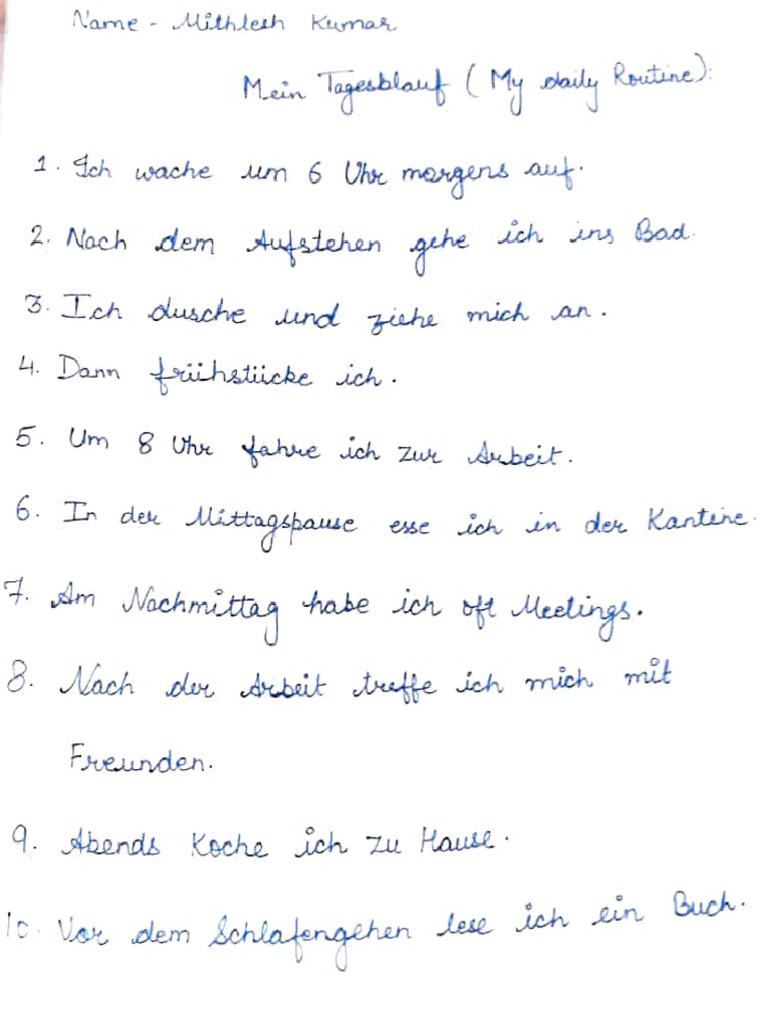 Name - Mithlesh Kumar
Mein Tagesblauf ( My daily Routine):
1. Ich wache um 6 Uhr morgens auf.
2. Nach dem Aufstehen gehe ich ins Bad.
3. Ich dusche und ziehe mich an.
4. Dann frühstücke ich.
5. Um 8 Uhr fahre ich zur Arbeit.
6. In der Mittagspause esse ich in der Kantine.
7. Am Nachmittag habe ich oft Meetings.
8. Nach der Arbeit treffe ich mich mit
Freunden.
9. Abends Koche ich zu Hause.
10. Vor dem Schlafengehen lese ich ein Buch.